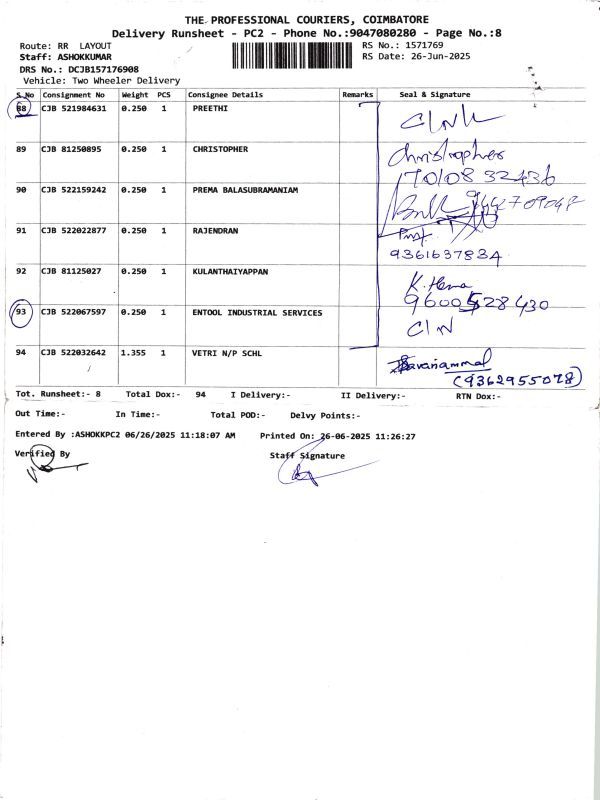 THE PROFESSIONAL COURIERS, COIMBATORE
Delivery Runsheet - PC2 - Phone No.:9047080280 - Page No.:8
Route: RR LAYOUT RS No.: 1571769
Staff: ASHOKKUMAR RS Date: 26-Jun-2025
DRS No.: DCJB157176908
Vehicle: Two Wheeler Delivery
S.No Consignment No Weight PCS Consignee Details Remarks Seal & Signature
88 CJB 521984631 0.250 1 PREETHI
89 CJB 81250895 0.250 1 CHRISTOPHER Christopher
7010832436
90 CJB 522159242 0.250 1 PREMA BALASUBRAMANIAM
91 CJB 522022877 0.250 1 RAJENDRAN
9361637834
92 CJB 81125027 0.250 1 KULANTHAIYAPPAN K. Hema
9600528430
93 CJB 522067597 0.250 1 ENTOOL INDUSTRIAL SERVICES C/N
94 CJB 522032642 1.355 1 VETRI N/P SCHL
(9362955078)
Tot. Runsheet:- 8 Total Dox:- 94 I Delivery:- II Delivery:- RTN Dox:-
Out Time:- In Time:- Total POD:- Delvy Points:-
Entered By :ASHOKKPC2 06/26/2025 11:18:07 AM Printed On: 26-06-2025 11:26:27
Verified By Staff Signature